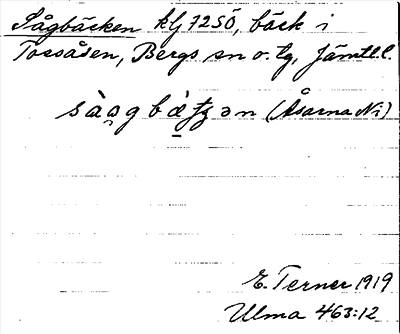 Sågbäcken klj 72SÖ, bäck i
Tossåsen, Bergs sn o. tg, Jämtl.
(Åsarna Ni)
E. Terner 1919
Ulma 463:12